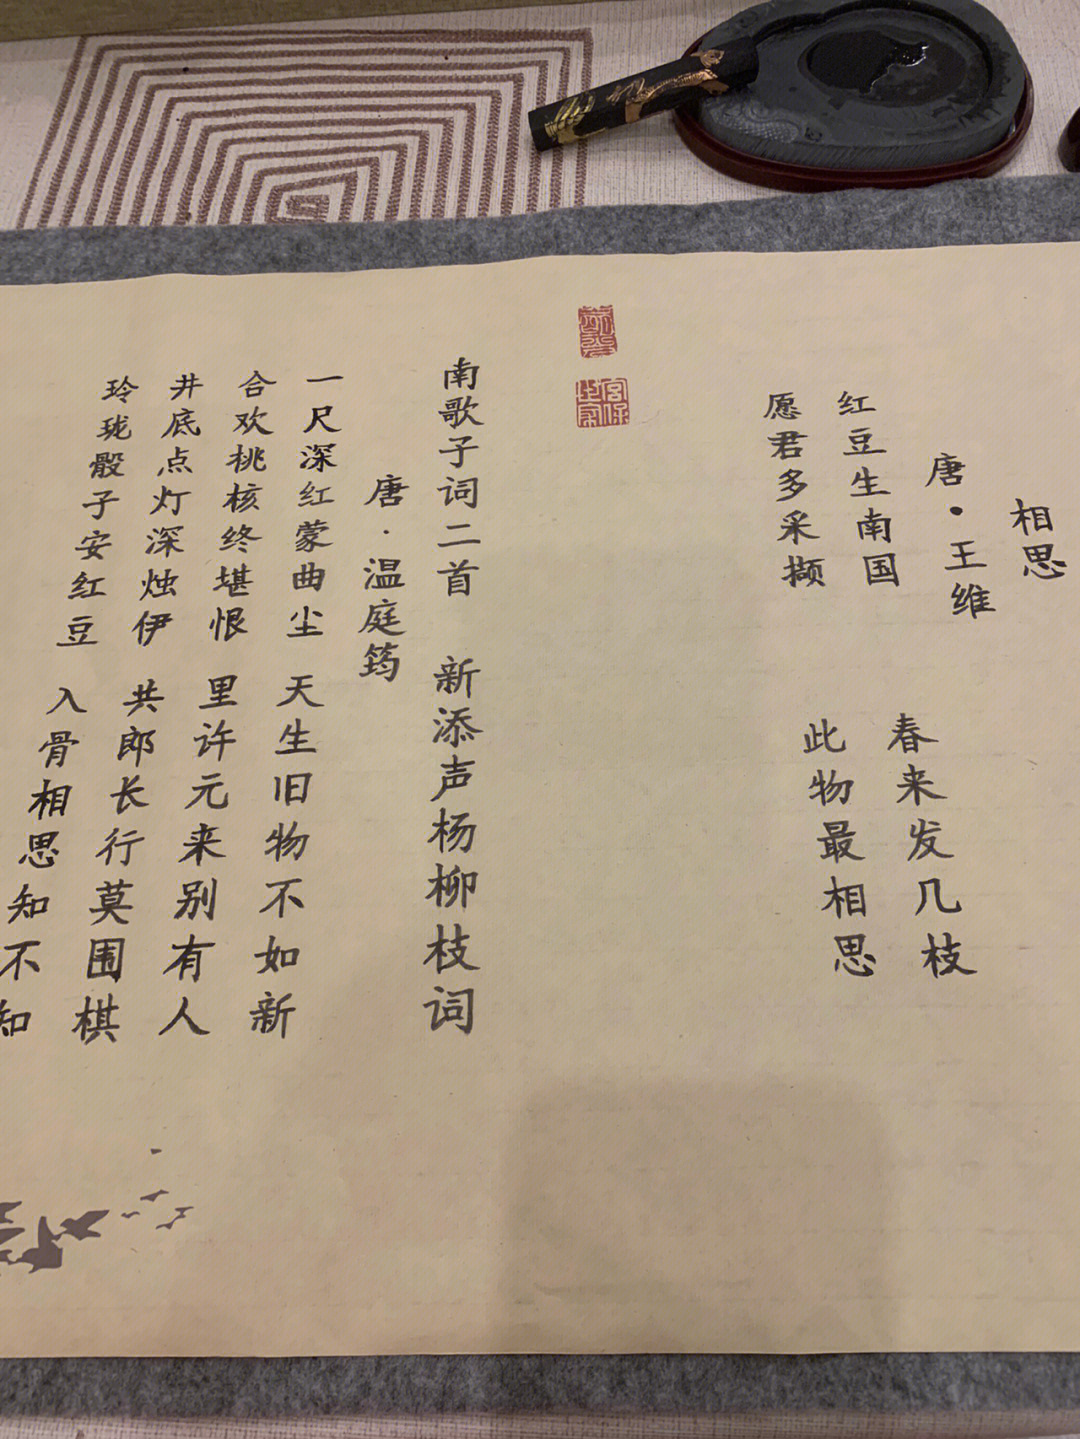 相思
唐·王维
红豆生南国 春来发几枝
愿君多采撷 此物最相思
南歌子词二首 新添声杨柳枝词
唐·温庭筠
一尺深红蒙曲尘 天生旧物不如新
合欢桃核终堪恨 里许元来别有人
井底点灯深烛伊 共郎长行莫围棋
玲珑骰子安红豆 入骨相思知不知